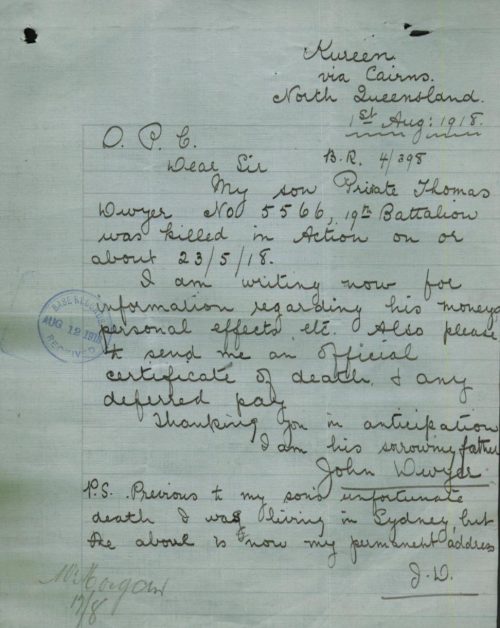 Kureen
via Cairns.
North Queensland.
1st Aug: 1918.
O. P. C.
B.R. 4/398
Dear Sir
My son Private Thomas
Dwyer No 5566, 19th Battalion
was killed in Action on or
about 23/5/18.
I am writing now for
information regarding his moneys
personal effects etc. Also please
to send me an official
certificate of death, & any
deferred pay
Thanking you in anticipation
I am his sorrowing father
John Dwyer
P.S. Previous to my sons unfortunate
death I was living in Sydney, but
the above is now my permanent address
J.D.
BASE RECORDS
AUG 12 1918
RECEIVED
Mr Morgan
17/8